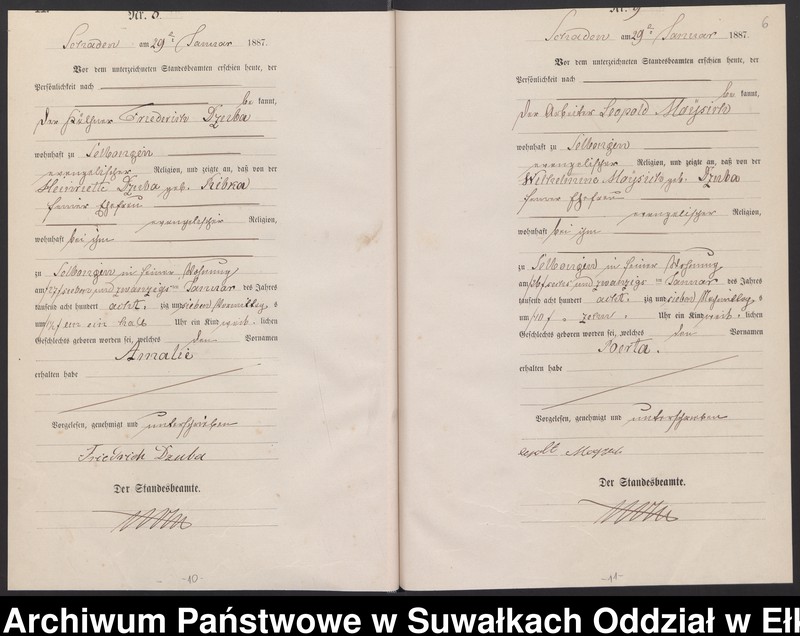 Nr. 8.
am 29 Januar 1887.
Vor dem unterzeichneten Standesbeamten erschien heute, der
Persönlichkeit nach
be kannt,
der Friederich Dzuba
wohnhaft zu
evangelischer Religion, und zeigte an, daß von der
Heinriette Dzuba geb. Ribka
seiner Ehefrau
evangelischer Religion,
wohnhaft bei ihm
zu in seiner Wohnung
am 27/sieben und zwanzigs ten Januar des Jahres
tausend acht hundert acht. zig und sieben Vormittag s
um ein halb Uhr ein Kind weib. lichen
Geschlechts geboren worden sei, welches den Vornamen
Amalie
erhalten habe
Vorgelesen, genehmigt und unterschrieben
Friedrich Dzuba
Der Standesbeamte.
-10-
Nr. 9
6
am 29 Januar 1887.
Vor dem unterzeichneten Standesbeamten erschien heute, der
Persönlichkeit nach
be kannt,
der Arbeiter Leopold Maÿsick
wohnhaft zu
evangelischer Religion, und zeigte an, daß von der
Wilhelmine Maÿsick geb. Dzuba
seiner Ehefrau
evangelischer Religion,
wohnhaft bei ihm
zu in seiner Wohnung
am 26/sechs und zwanzigs ten Januar des Jahres
tausend acht hundert acht. zig und sieben Nachmittag s
um /10/ zehn Uhr ein Kind weib. lichen
Geschlechts geboren worden sei, welches den Vornamen
Berta.
erhalten habe
Vorgelesen, genehmigt und unterschrieben
Der Standesbeamte.
-11-
Archiwum Państwowe w Suwałkach Oddział w Eł